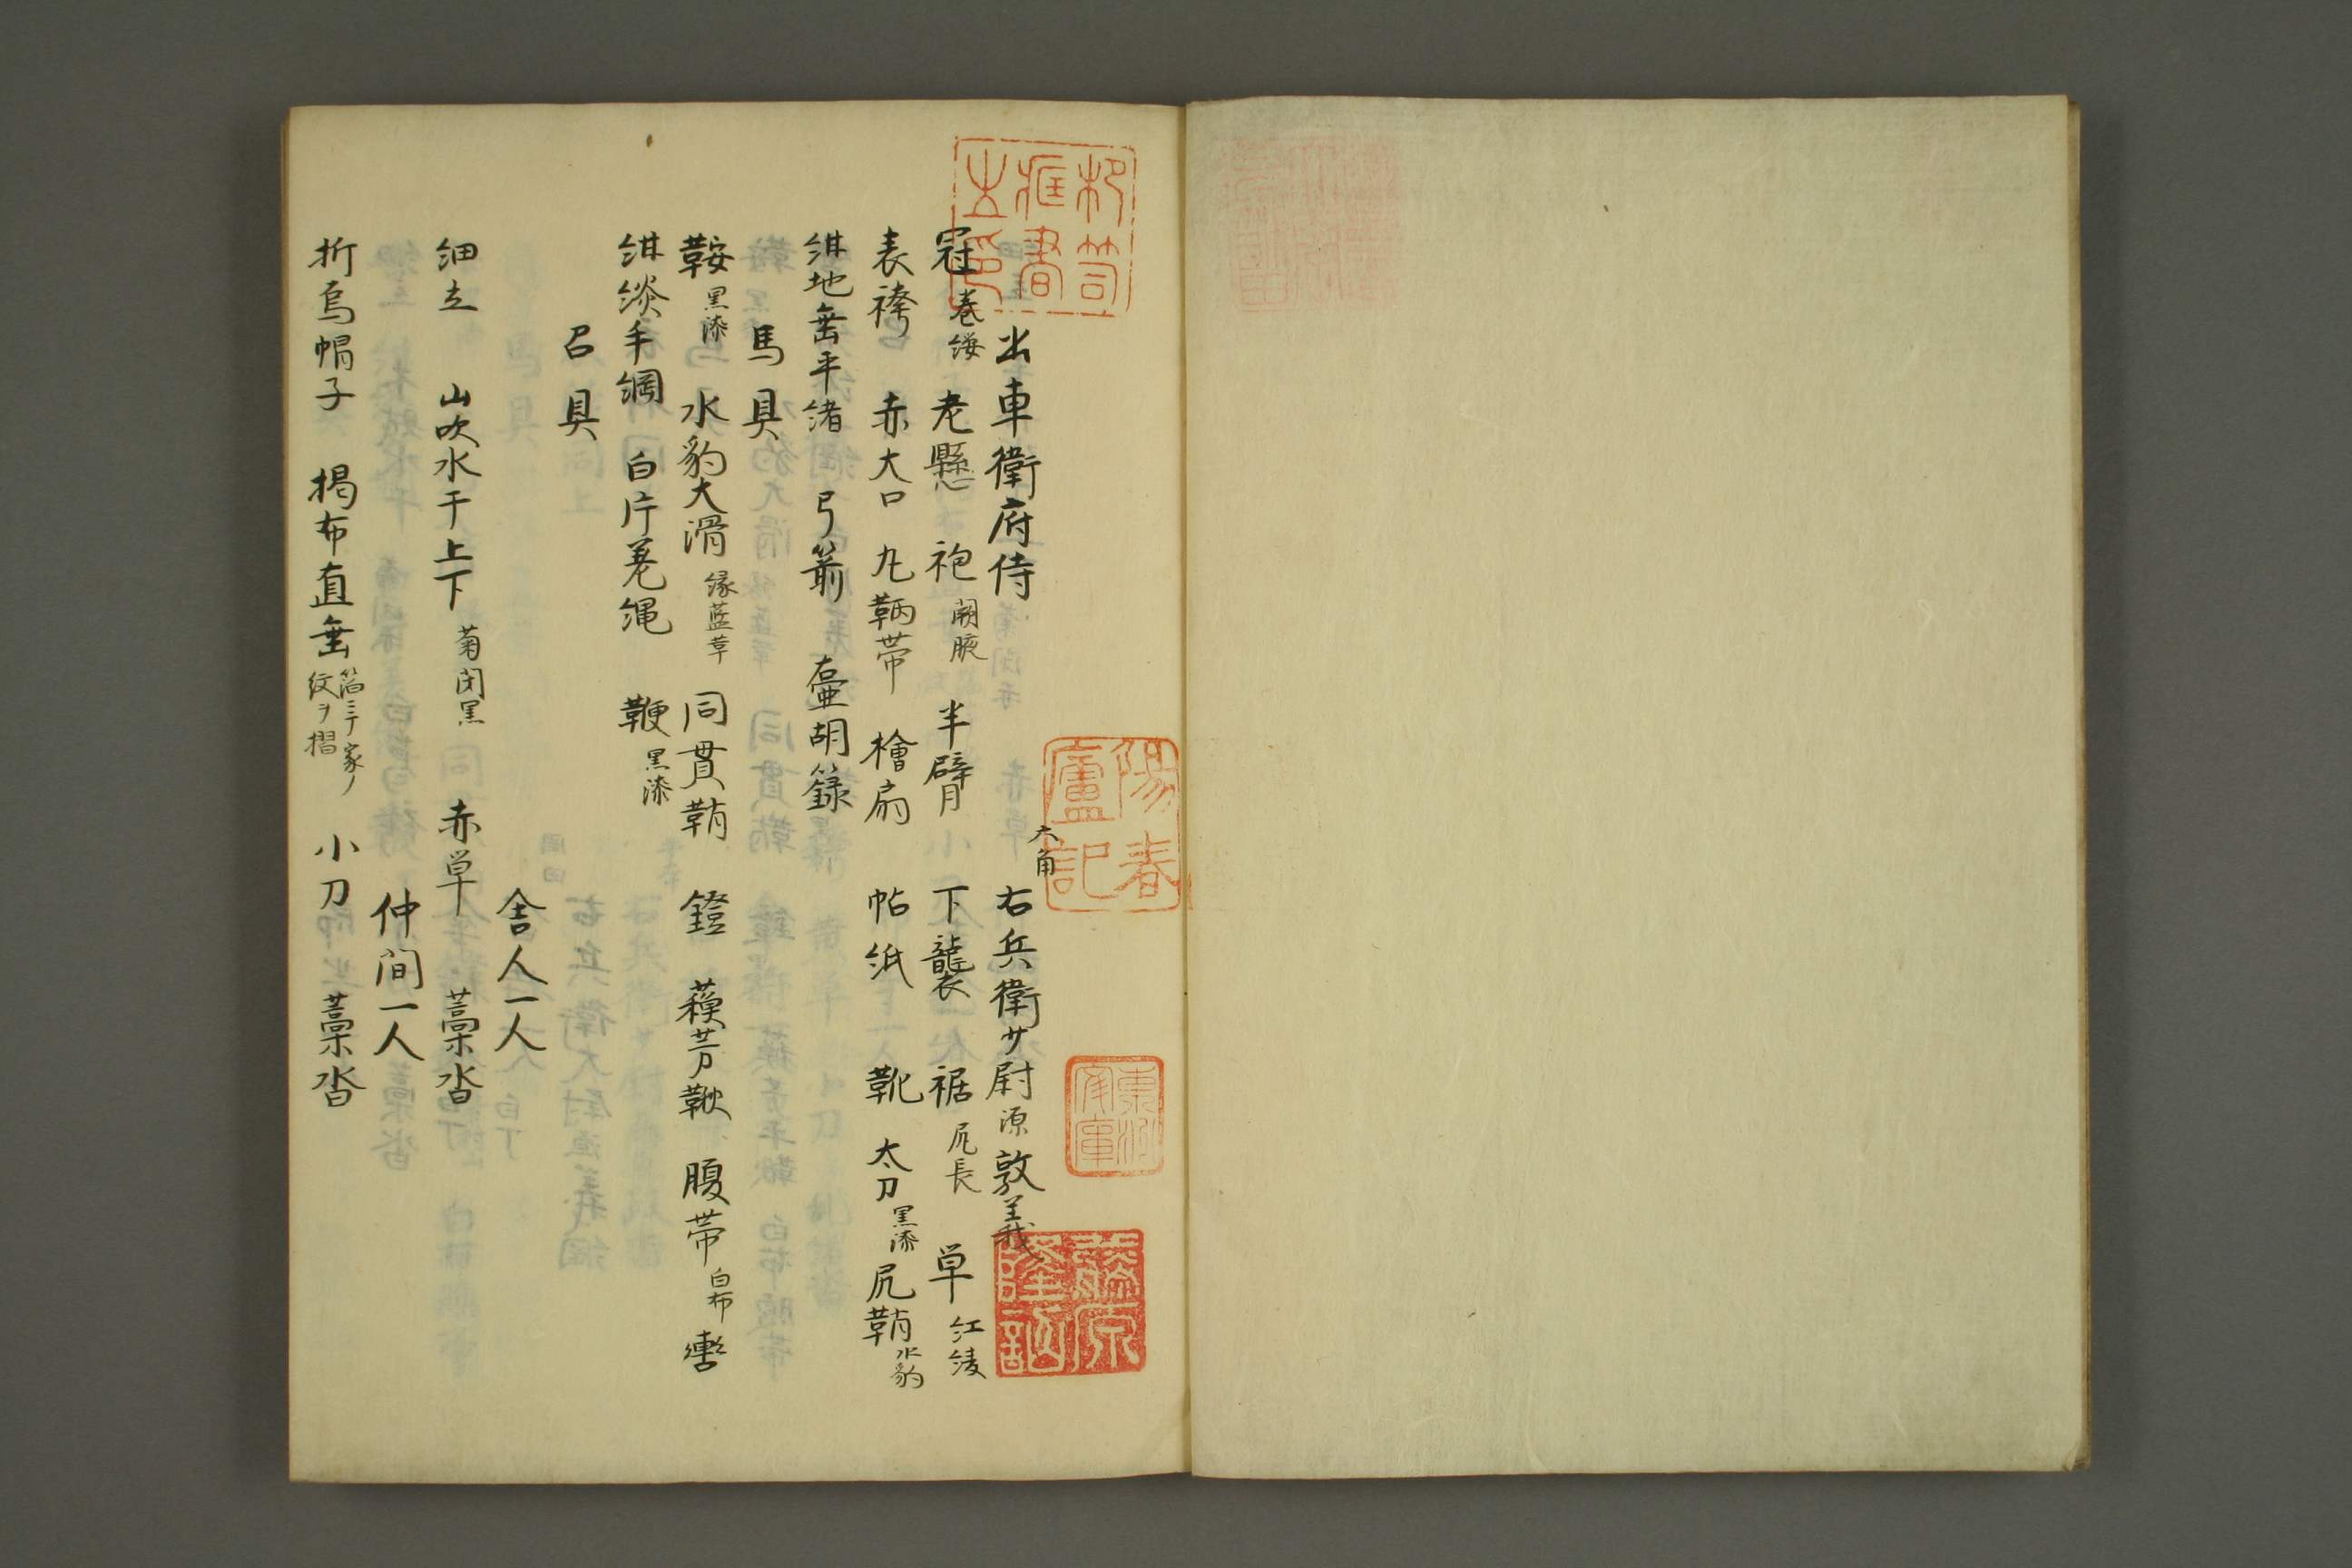 出車衛府侍 大角 右兵衛少尉源敦義
冠 巻緌 老懸 袍 闕腋 半臂 下襲 裾 尻長 単 紅綾
表袴 赤大口 丸鞆帯 檜扇 帖紙 靴 太刀 黒漆 尻鞘 水豹
紺地垂平緒 弓箭 壷胡籙
馬具
鞍 黒漆 水豹大滑 縁藍革 同貫鞘 鐙 蘓芳鞦 腹帯 白布 轡
紺淡手綱 白片差縄 鞭 黒漆
召具
舎人一人
細立 山吹水干上下 菊閉黒 赤単 藁沓
仲間一人
折烏帽子 褐布直垂 家ノ紋ヲ摺 小刀 藁沓
陽春廬記